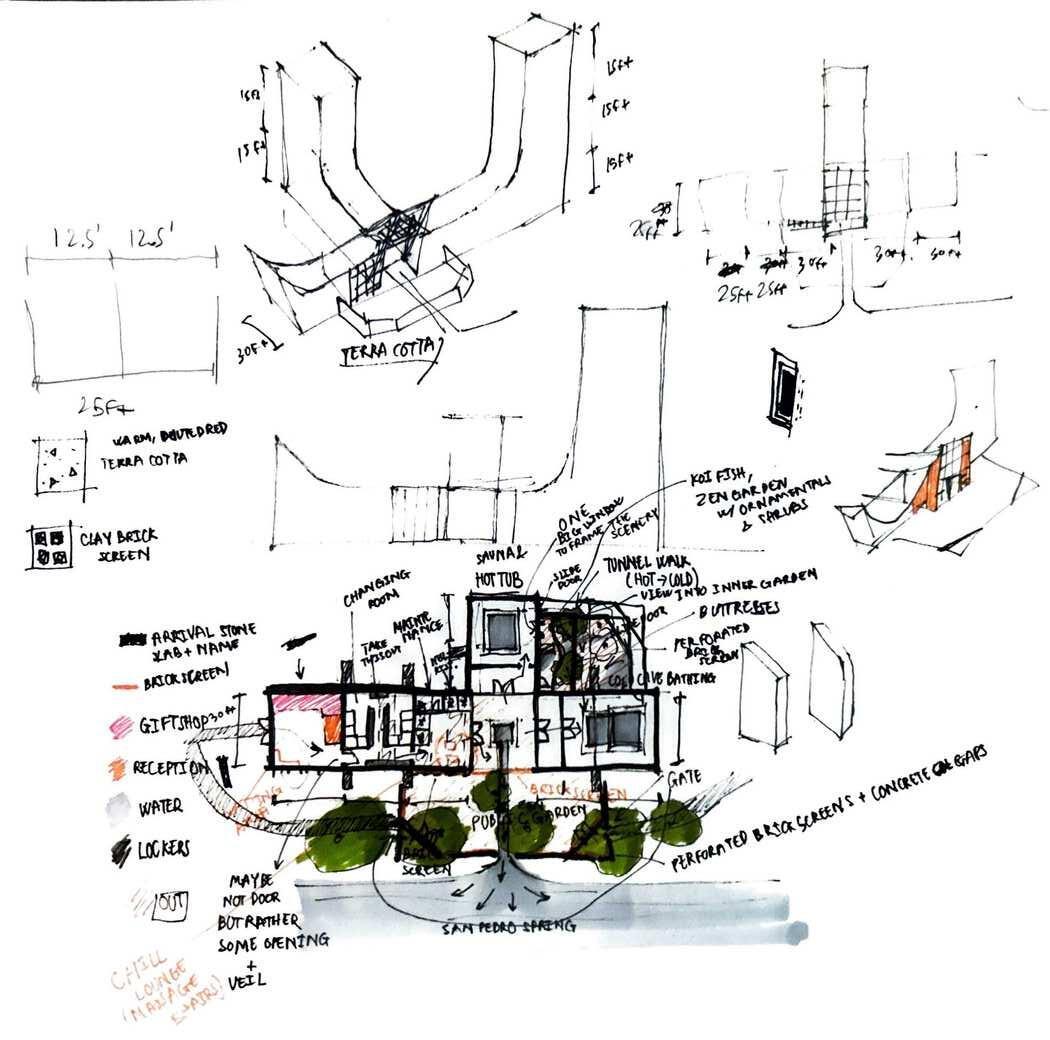 15ft
15ft
15ft
15ft
15ft
12.5' 12.5'
25Ft
30Ft
TERRA COTTA
30ft
30ft
25ft 25ft
WARM,
TERRA COTTA
CLAY BRICK
SCREEN
KOI FISH,
ZEN GARDEN
W/ ORNAMENTALS
& SHRUBS
ONE
BIG WINDOW
TO FRAME THE
SCENERY
SAUNA &
HOT TUB
SLIDE
DOOR
TUNNEL WALK
(HOT → COLD)
VIEW INTO INNER GARDEN
BUTTRESSES
PERFORATED
BRICK
SCREEN
CHANGING
ROOM
MAINTE
NANCE
BATHING
ARRIVAL STONE
SLAB + NAME
BRICK SCREEN
GIFTSHOP
30ft
RECEPTION
WATER
LOCKERS
OUT
GATE
BRICK SCREEN
PUBLIC GARDEN
SCREEN
PERFORATED BRICK SCREENS + CONCRETE GAPS
SAN PEDRO SPRING
MAYBE
NOT DOOR
BUT RATHER
SOME OPENING
+
VEIL
CHILL
LOUNGE
(MASSAGE